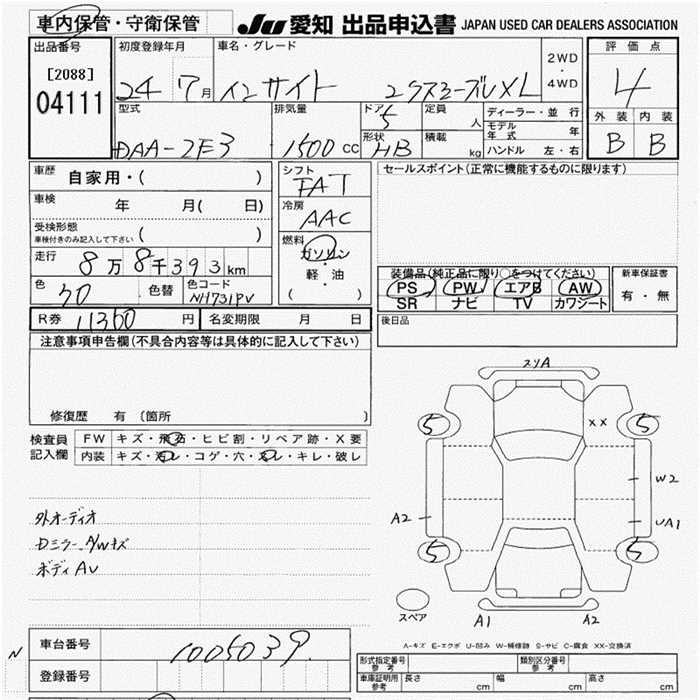 車内保管・守衛保管
JU 愛知 出品申込書 JAPAN USED CAR DEALERS ASSOCIATION
出品番号 初度登録年月 車名・グレード 2WD・4WD 評価点
[2088]
04111
24 7月 インサイト XL 4
型式 排気量 ドア 5 定員 人 ディーラー・並行 外装 内装
モデル年式 年
DAA-ZE3 1500 CC 形状 HB 積載 kg ハンドル 左・右 B B
車歴 自家用・( ) シフト FAT セールスポイント(正常に機能するものに限ります)
車検 年 月( 日) 冷房 AAC
受検形態 ( )
車検付きのみ記入して下さい
燃料 ガソリン・軽・油 ( )
走行 8万8千393km
装備品(純正品に限り○をつけてください) 新車保証書
PS PW エアB AW 有・無
SR ナビ TV カワシート
色 色替 色コード NH731PV
R券 11360円 名変期限 月 日 後日品
注意事項申告欄(不具合内容等は具体的に記入して下さい)
修復歴 有 (箇所 )
検査員記入欄
FW キズ・飛石・ヒビ割・リペア跡・X要
内装 キズ・汚レ・コゲ・穴・スレ・キレ・破レ
外オーディオ
Dミラー、A/Wキズ
ボディAU
スリA
5 XX 5
W2
A2 UA1
5 5
スペア
A1 A2
A-キズ E-エクボ U-凹み W-補修跡 S-サビ C-腐食 XX-交換済
N 車台番号 1005039
登録番号
形式指定番号参考 類別区分番号参考
車庫証明用参考 長さ cm 幅 cm 高さ cm